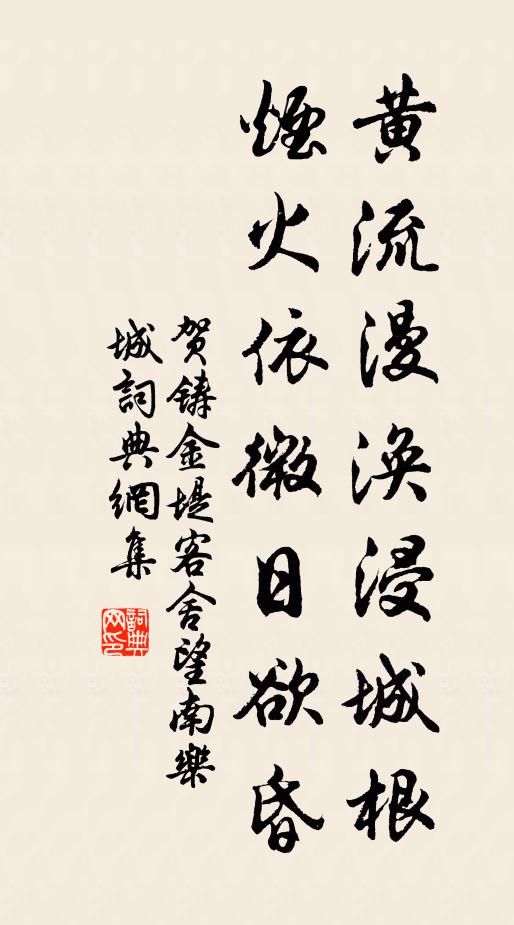 黄流漫渙浸城根
煙火依微日欲昏
贺鑄金堤客舍望南樂
城詞典網集
詞典网印